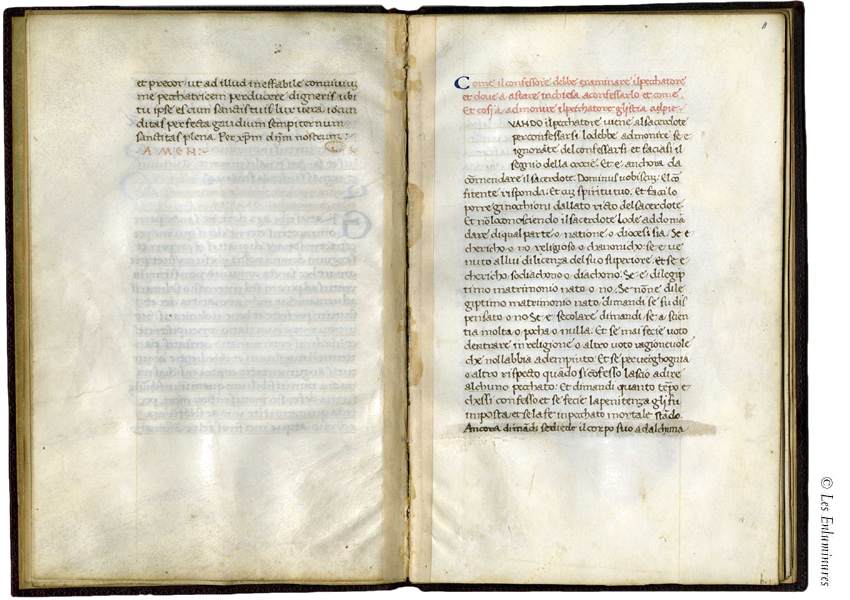 et precor ut ad illud ineffabile conviviuȝ
me pecchatricem perducere digneris ubi
tu ipse es cum sanctis tuis lux vera iocun
ditas perfecta gaudium sempiternum
sanctitas plena. Per xpm dnm nostrum:
AMEN:
Come il confessore debbe examinare il pecchatore
et dove a astare inchiesa a confessarlo et come
Et cosi a admonire il pecchatore
VANDO il pecchatore viene al sacerdote
per confessarsi lo debbe admonire se e
ignorate del confessarsi et faciasi il
segnio della crocie. Et e anchora da
comendare il sacerdote. Dominus vobiscuȝ. El cō
fitente risponda. Et cuȝ spiritu tuo. et faccilo
porre ginochioni dallato ricto del sacerdote
Et nō lo conosciendo il sacerdote lo de addomā
dare di qual parte o natione o diocesi sia. Se e
chericho o no. religioso o chanonicho. se e ve
nuto allui di licenza del suo superiore. Et se e
chericho sodiachono o diachono. Se e di legip
timo matrimonio nato o no. Se none di le
giptimo matrimonio nato dimandi se fu dis
pensato o no Se e secolare dimandi se a scien
tia molta o pocha o nulla. Et se mai fecie voto
dentrare in religione o altro voto ragionevole
che nollabbia adempiuto. Et se per verghognia
o altro rispecto quādo si cōfesso lascio a dire
alchuno pecchato. Et dimandi quanto tēpo e
chessi confesso et se fecie la penitenza gli fu
imposta. et se la fe in pecchato mortale stādo.
Ancora dimādi se diede il corpo suo ad alchuna
© Les Enluminures